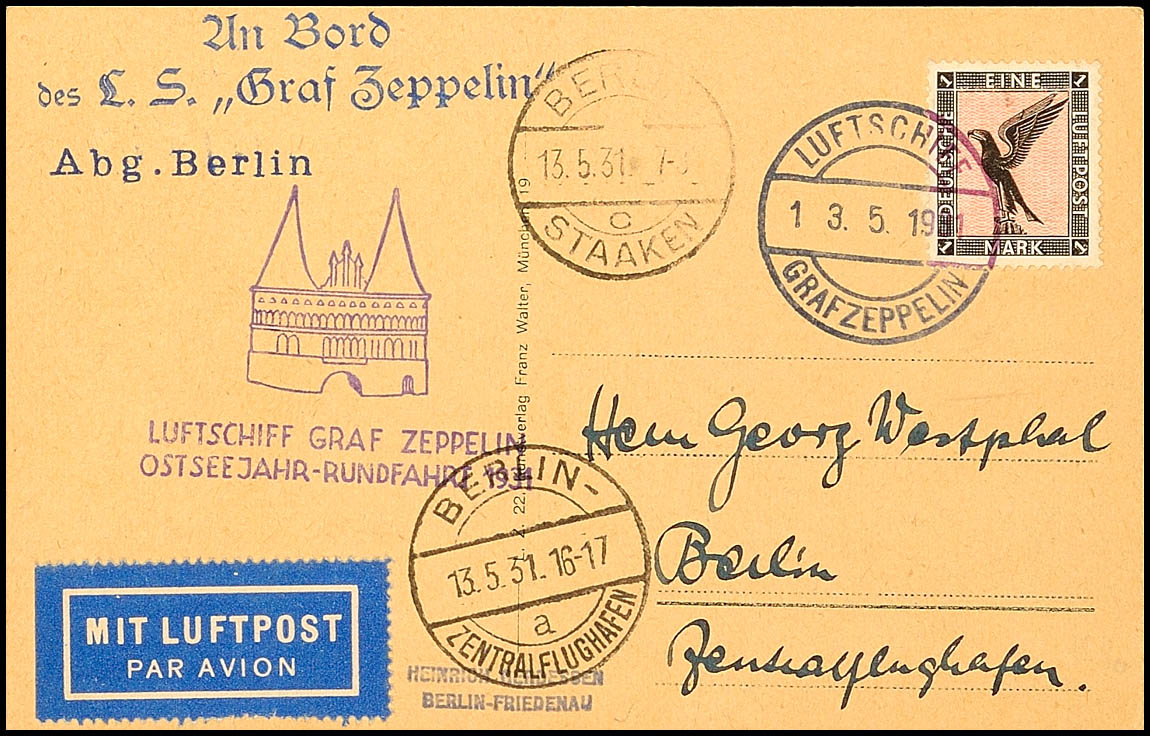 An Bord
des L. S. „Graf Zeppelin“
Abg. Berlin
BERLIN
13.5.31
c
STAAKEN
LUFTSCHIFF
1 3. 5. 19 1
GRAF ZEPPELIN
EINE
DEUTSCHE LUFTPOST
MARK
1 1
1 1
LUFTSCHIFF GRAF ZEPPELIN
OSTSEEJAHR-RUNDFAHRT 1931
22. Kunstverlag Franz Walter, München 19
Herrn Georg Westphal
Berlin
Zentralflughafen.
BERLIN-
13.5.31. 16-17
a
ZENTRALFLUGHAFEN
MIT LUFTPOST
PAR AVION
HEINRICH
BERLIN-FRIEDENAU